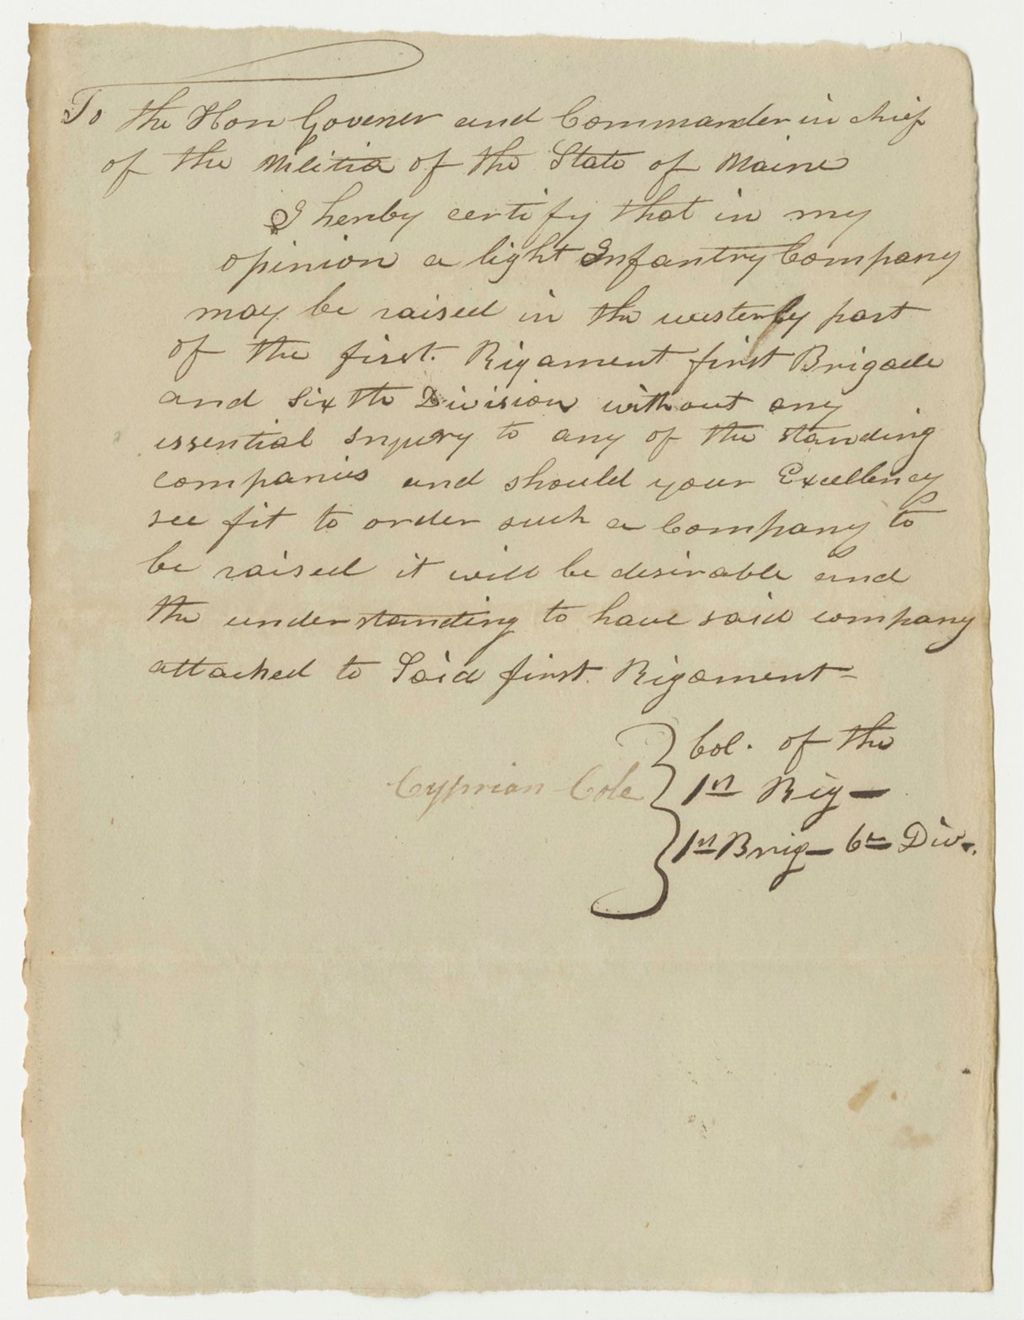 To the Hon Govener and Commander in chief
of the Militia of the State of Maine
I hereby certify that in my
opinion a light Infantry Company
may be raised in the westerly part
of the first. Rigament first Brigade
and Sixth Division without any
essential Injury to any of the standing
companies and should your Excellency
see fit to order such a Company to
be raised it will be desirable and
the understanding to have said company
attached to Said first Rigament -
Cyprian Cole } Col. of the
1st Rig -
1st Brig - 6th Div.